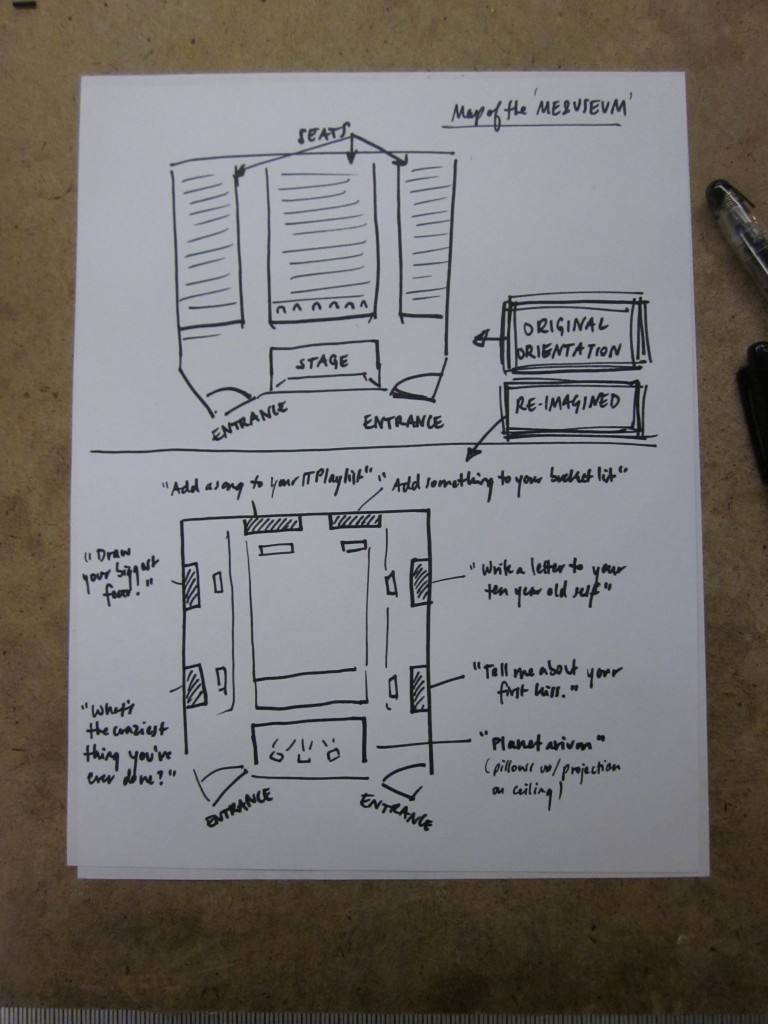 Map of the 'MEUSEUM'
SEATS
STAGE
ENTRANCE
ENTRANCE
ORIGINAL
ORIENTATION
RE-IMAGINED
"Add a song to your IT Playlist"
"Add something to your bucket list"
"Draw
your biggest
fear."
"Write a letter to your
ten year old self"
"Tell me about your
first kiss."
"What's
the craziest
thing you've
ever done?"
"Planetarium"
(pillows w/projection
on ceiling)
ENTRANCE
ENTRANCE